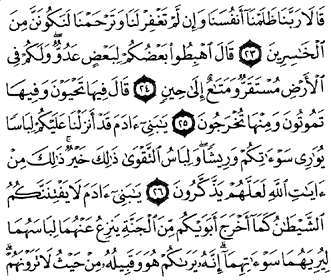 قَالَا رَبَّنَا ظَلَمْنَا أَنفُسَنَا وَإِن لَّمْ تَغْفِرْ لَنَا وَتَرْحَمْنَا لَنَكُونَنَّ مِنَ
الْخَاسِرِينَ ٢٣ قَالَ اهْبِطُوا بَعْضُكُمْ لِبَعْضٍ عَدُوٌّ وَلَكُمْ فِي
الْأَرْضِ مُسْتَقَرٌّ وَمَتَاعٌ إِلَىٰ حِينٍ ٢٤ قَالَ فِيهَا تَحْيَوْنَ وَفِيهَا
تَمُوتُونَ وَمِنْهَا تُخْرَجُونَ ٢٥ يَٰبَنِي ءَادَمَ قَدْ أَنزَلْنَا عَلَيْكُمْ لِبَاسًا
يُوَٰرِي سَوْءَٰتِكُمْ وَرِيشًا وَلِبَاسُ التَّقْوَىٰ ذَٰلِكَ خَيْرٌ ذَٰلِكَ مِنْ
ءَايَٰتِ اللَّهِ لَعَلَّهُمْ يَذَّكَّرُونَ ٢٦ يَٰبَنِي ءَادَمَ لَا يَفْتِنَنَّكُمُ
الشَّيْطَٰنُ كَمَا أَخْرَجَ أَبَوَيْكُم مِّنَ الْجَنَّةِ يَنزِعُ عَنْهُمَا لِبَاسَهُمَا
لِيُرِيَهُمَا سَوْءَٰتِهِمَا إِنَّهُ يَرَىٰكُمْ هُوَ وَقَبِيلُهُ مِنْ حَيْثُ لَا تَرَوْنَهُمْ